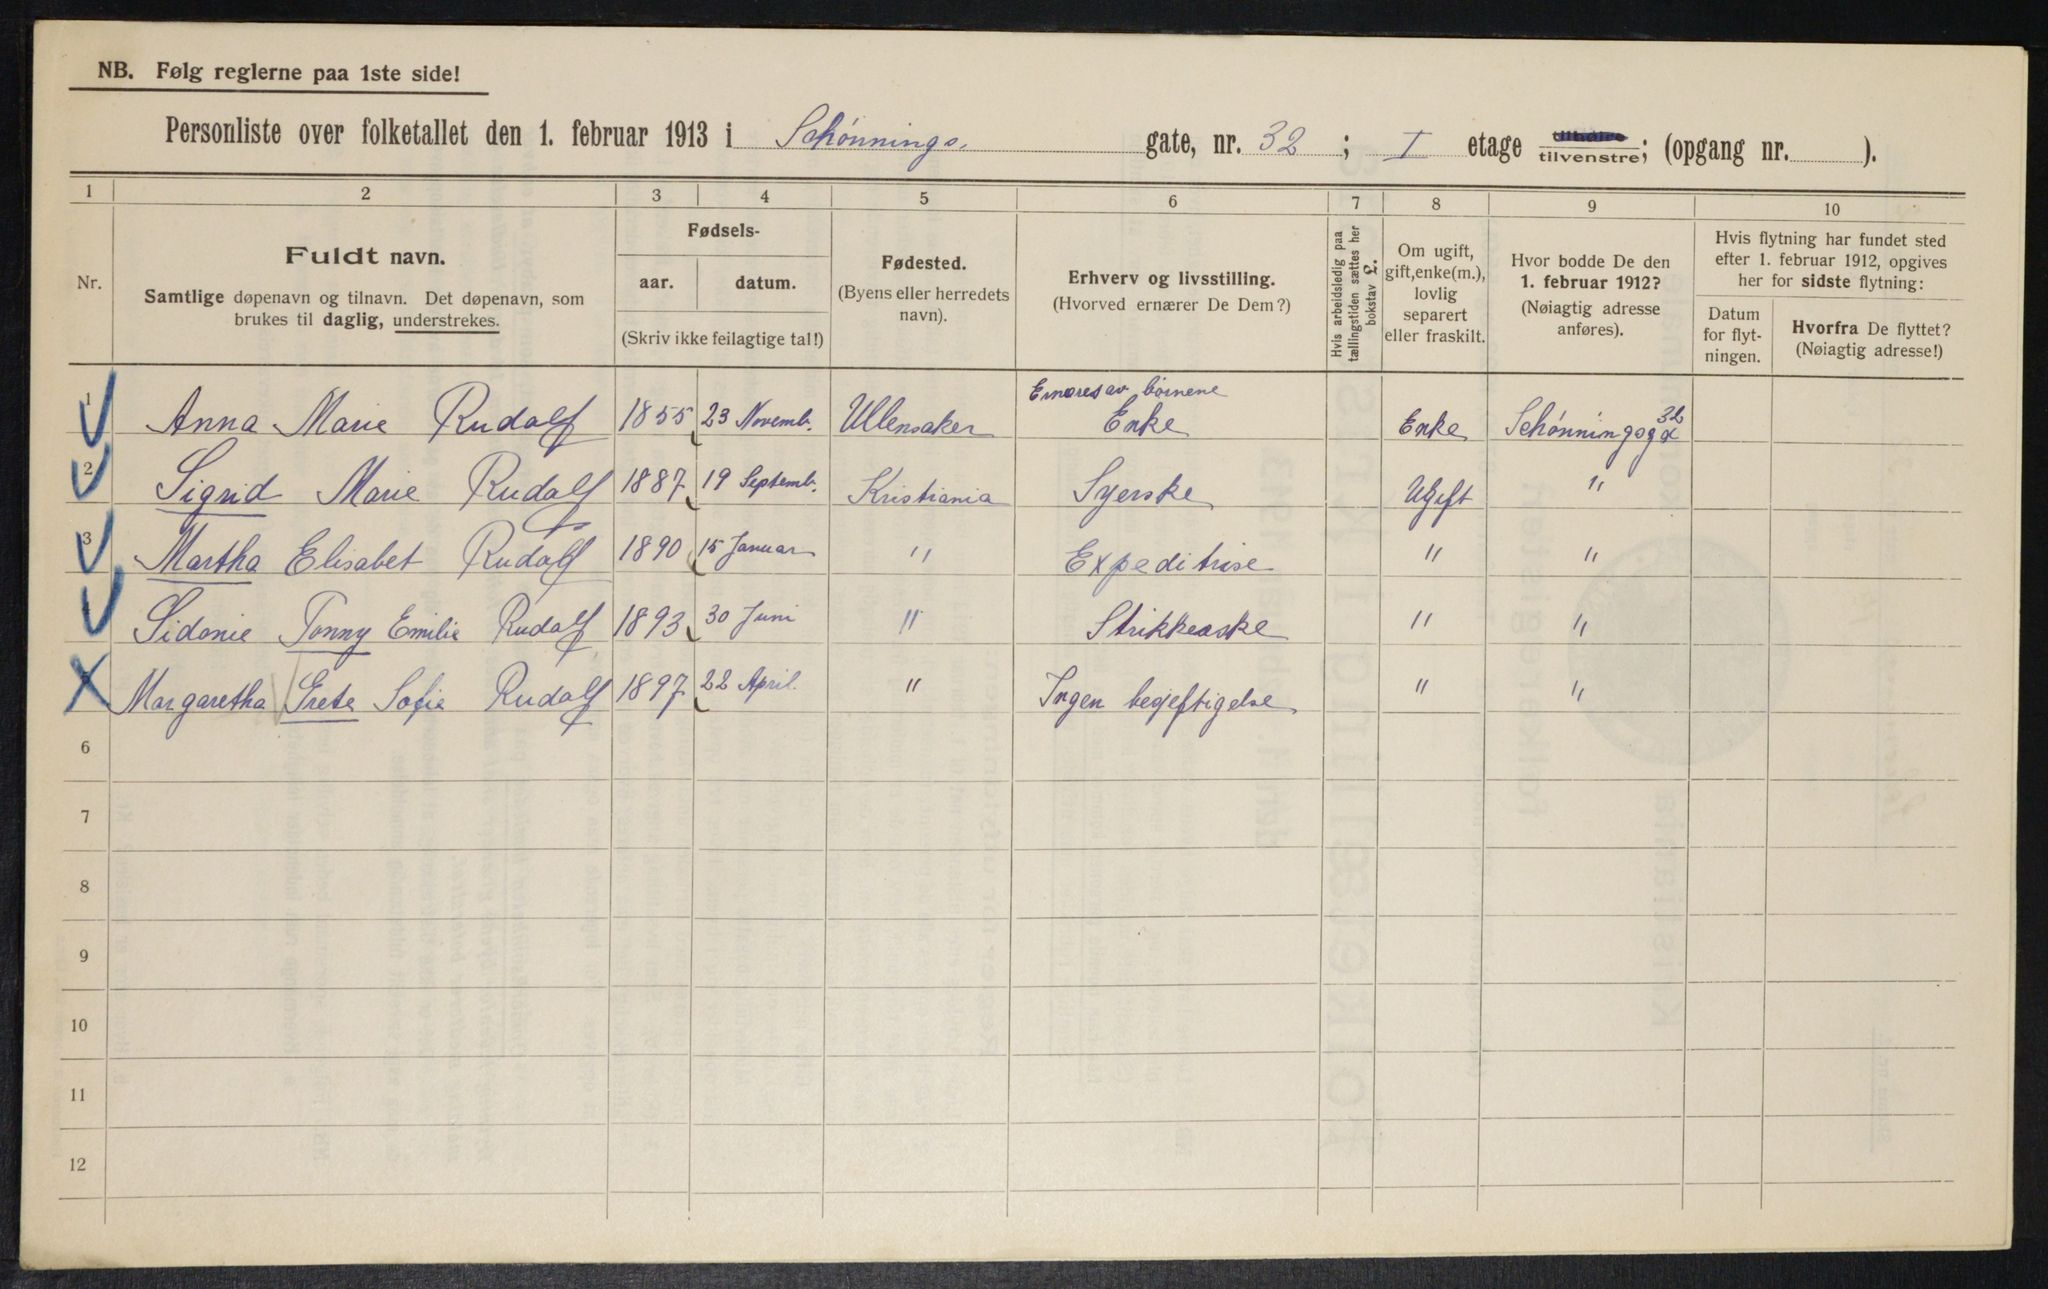 NB. Følg reglerne paa 1ste side!
Personliste over folketallet den 1. februar 1913 i Schønnings. gate, nr. 32 ; I etage tilhøire tilvenstre; (opgang nr. ).
1 2 3 4 5 6 7 8 9 10
Nr.
Fuldt navn.
Samtlige døpenavn og tilnavn. Det døpenavn, som
brukes til daglig, understrekes.
Fødsels-
aar. datum.
(Skriv ikke feilagtige tal!)
Fødested.
(Byens eller herredets
navn).
Erhverv og livsstilling.
(Hvorved ernærer De Dem?)
Hvis arbeidsledig paa
tællingstiden sættes her
bokstav L.
Om ugift,
gift, enke(m.),
lovlig
separert
eller fraskilt.
Hvor bodde De den
1. februar 1912?
(Nøiagtig adresse
anføres).
Hvis flytning har fundet sted
efter 1. februar 1912, opgives
her for sidste flytning:
Datum
for flyt-
ningen.
Hvorfra De flyttet?
(Nøiagtig adresse!)
Ernæres av børnene
1 Anna Marie Rudolf 1855 23 Novemb. Ullensaker Enke Enke Schønningsg 32
2 Sigrid Marie Rudolf 1887 19 Septemb. Kristiania Syerske Ugift "
3 Martha Elisabet Rudolf 1890 15 Januar " Expeditrise " "
Sidonie Tonny Emilie Rudolf 1893 30 Juni " Strikkeaske " "
Margaretha Grete Sofie Rudolf 1897 22 April. " Ingen begeftigelse " "
6
7
8
9
10
11
12